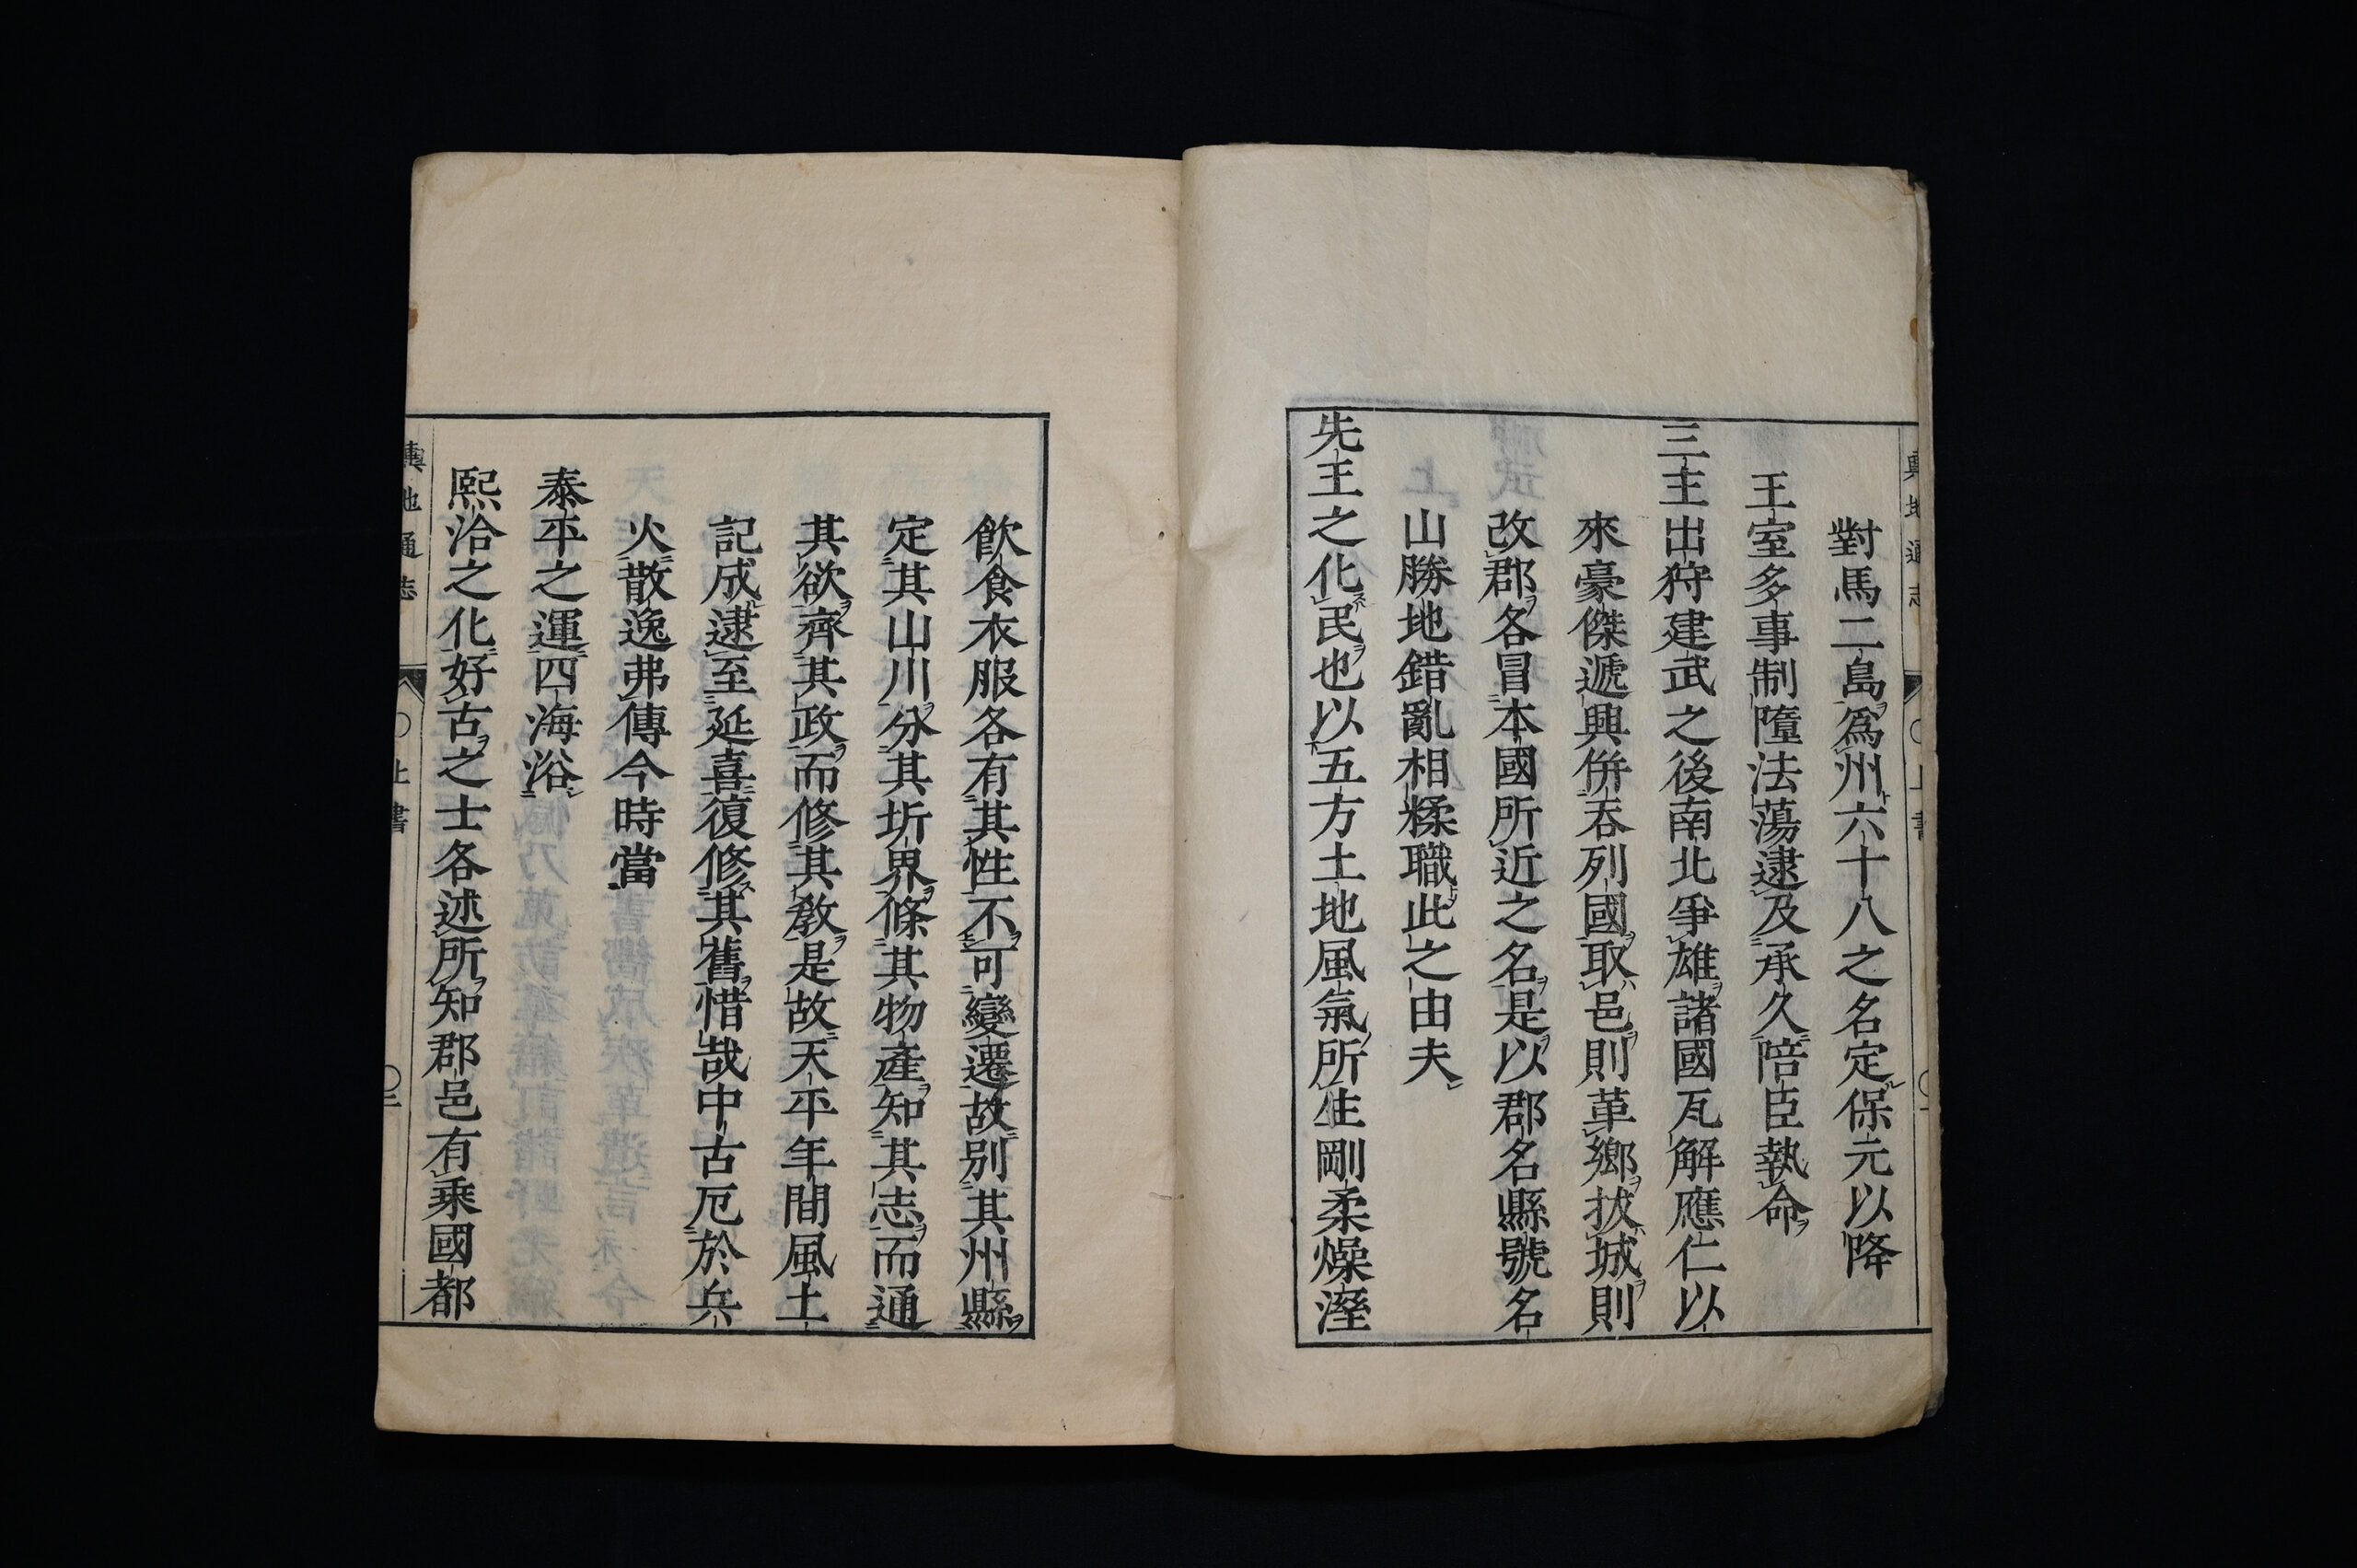 對馬二島爲州六十八之名定保元以降
王室多事制隳法蕩逮及承久陪臣執命
三主出狩建武之後南北爭雄諸國瓦解應仁以
來豪傑遞興併呑列國取邑則革鄉拔城則
改郡各冒本國所近之名是以郡名縣號名
山勝地錯亂相糅職此之由夫
先王之化民也以五方土地風氣所生剛柔燥溼
飲食衣服各有其性不可變遷故別其州縣
定其山川分其圻界條其物產知其志而通
其欲齊其政而修其敎是故天平年間風土
記成逮至延喜復修其舊惜哉中古厄於兵
火散逸弗傳今時當
泰平之運四海浴
熙洽之化好古之士各述所知郡邑有乘國都
輿地通志
上書